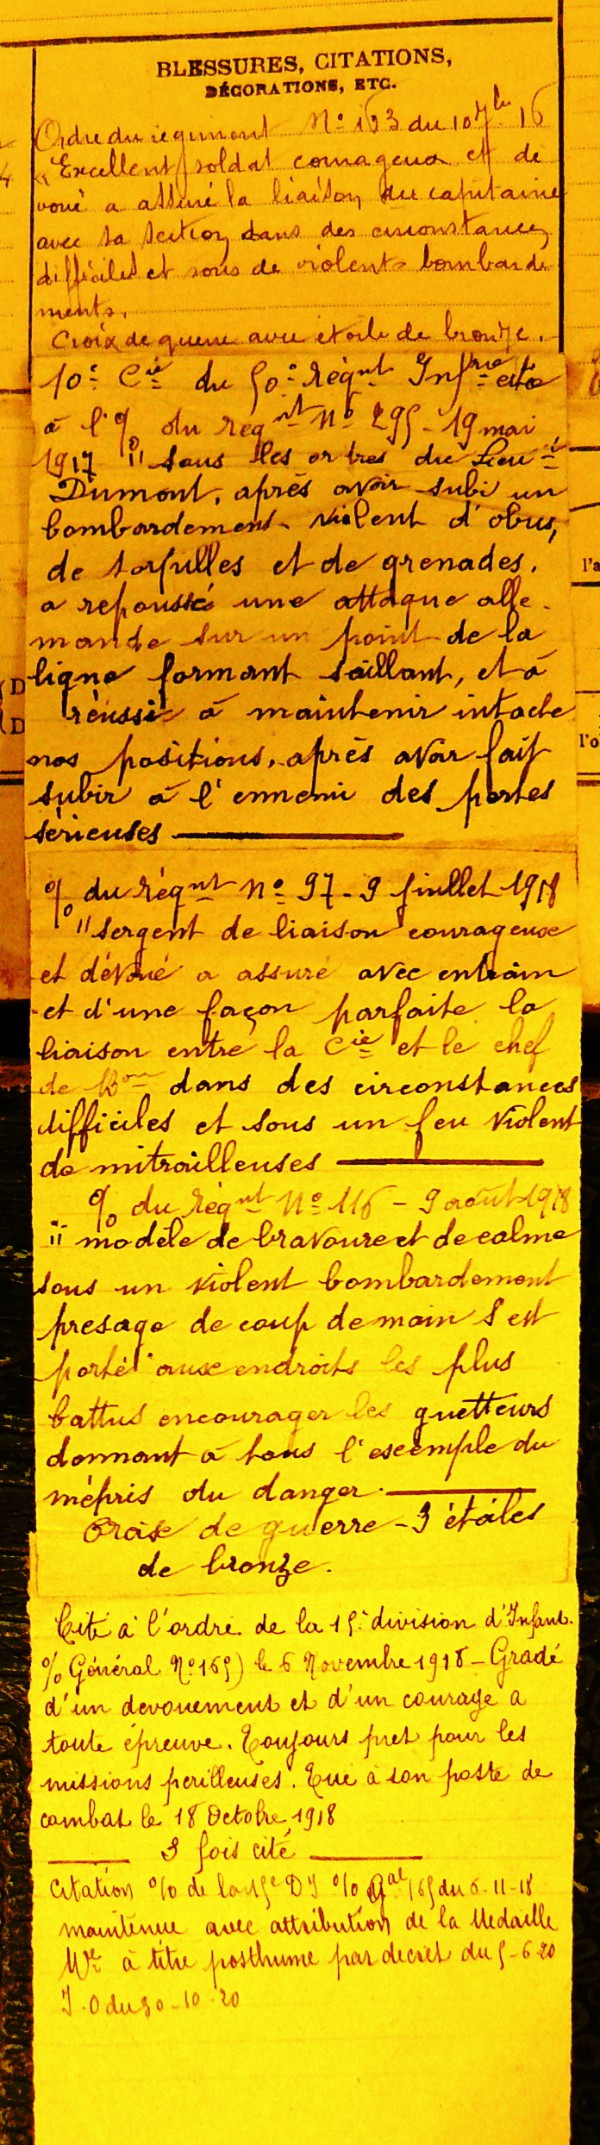 BLESSURES, CITATIONS,
DÉCORATIONS, ETC.
Ordre du régiment No 163 du 10 16
"Excellent soldat courageux et dé
voué a assuré la liaison du capitaine
avec sa section dans des circonstances
difficiles et sous de violents bombarde
ments.
Croix de guerre avec étoile de bronze.
10e Cie du 50e Régnt Infrie citée
à l'% du regnt No 295 - 19 mai
1917 " sous les ordres du Lieut
Dumont, après avoir subi un
bombardement violent d'obus,
de torpilles et de grenades,
a repoussé une attaque alle-
mande sur un point de la
ligne formant saillant, et a
réussi à maintenir intacte
nos positions, après avoir fait
subir à l'ennemi des pertes
sérieuses
% du régnt No 97 - 9 juillet 1918
"sergent de liaison courageux
et dévoué a assuré avec entrain
et d'une façon parfaite la
liaison entre la Cie et le chef
de Bon dans des circonstances
difficiles et sous un feu violent
de mitrailleuses
% du régnt No 116 - 9 août 1918
" modèle de bravoure et de calme
sous un violent bombardement
presage de coup de main s'est
porté aux endroits les plus
battus encourager les guetteurs
donnant à tous l'exemple du
mépris du danger.
Croix de guerre - 3 étoiles
de bronze.
Cité à l'ordre de la 15e division d'Infant.
% Général No 165) le 6 Novembre 1918 - Gradé
d'un devouement et d'un courage a
toute épreuve. Toujours pret pour les
missions perilleuses. Tué à son poste de
combat le 18 Octobre 1918
3 fois cité
Citation % de la 15e DI % Gal 165 du 6-11-18
maintenue avec attribution de la Medaille
Mre à titre posthume par decret du 5-6-20
J.O du 30-10-20